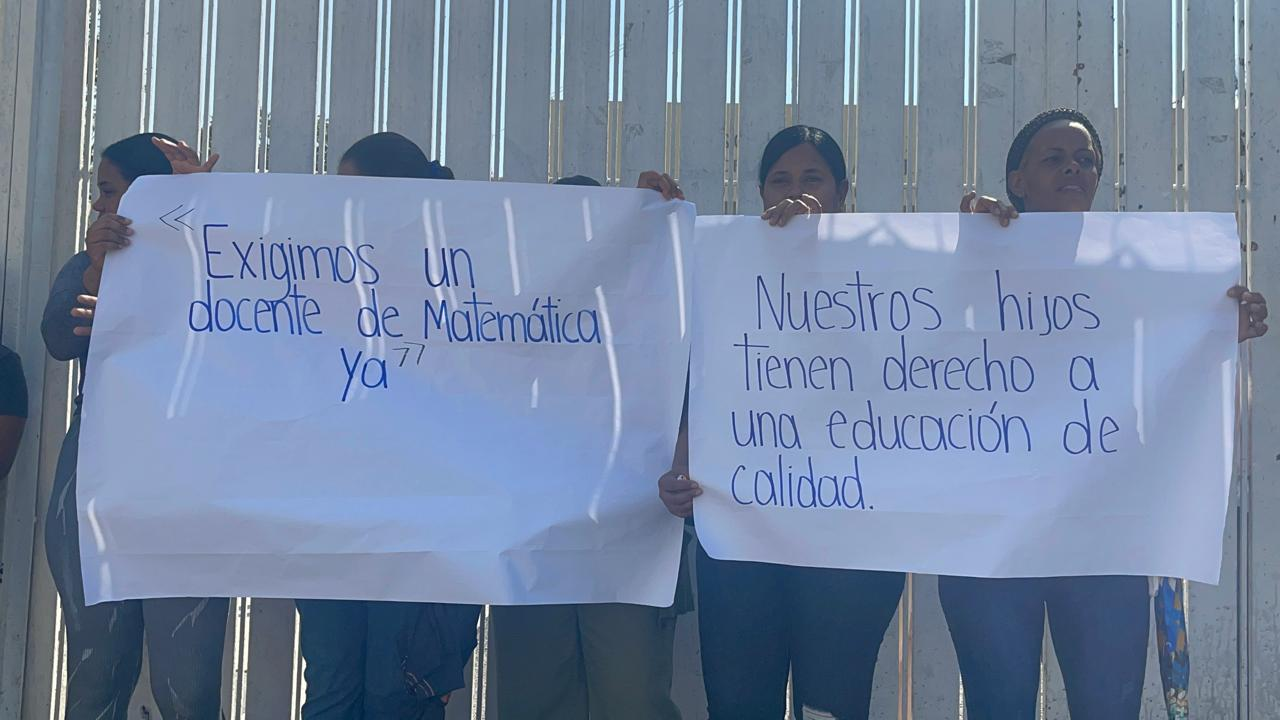 «Exigimos un
docente de Matemática
ya»
Nuestros hijos
tienen derecho a
una educación de
calidad.